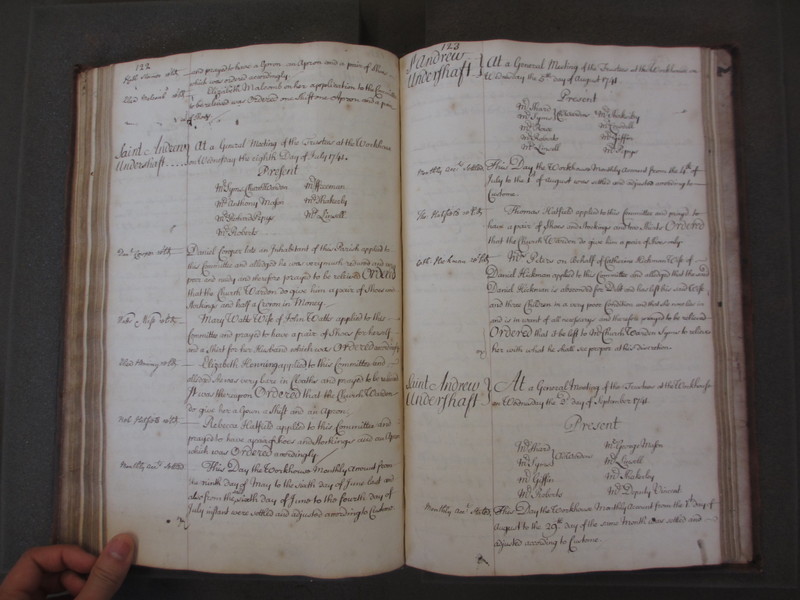 122
and prayed to have a Gown an Apron and a pair of Shoes
which was ordered accordingly.
Elizabeth Malcomb on her application to this Committee
to be relieved was Ordered one Shift one Apron and a pair
Saint Andrew
Undershaft
At a General Meeting of the Trustees at the Workhouse
on Wednesday the eighth Day of July 1741.
Present
Mr Syms Church Warden Mr Freeman
Mr Anthony Mason Mr Shakerly
Mr Richard Pepys Mr Lowell
Mr Roberts
Dan: Cooper relkd
Daniel Cooper late an Inhabitant of this Parish applied to
this Committee and alledged he was very much reduced and very
poor and needy and therefore prayed to be relieved Ordered
that the Church Warden do give him a pair of Shoes and
Stockings and half a Crown in Money.
Mary Watts Wife of John Watts applied to this
Committee and prayed to have a pair of Shoes for herself
and a Shirt for her Husband which was Ordered accordingly
Eliz: Henning relkd
Elizabeth Henning applied to this Committee and
alledged she was very bare in Cloaths and prayed to be relieved
It was thereupon Ordered that the Church Warden
do give her a Gown a Shift and an Apron.
Reb: Hatfield relkd
Rebecca Hatfield applied to this Committee and
prayed to have a pair of Shoes and Stockings and an Apron
which was Ordered accordingly.
Monthly Acct Settled
This Day the Workhouse Monthly Account from
the ninth day of May to the sixth day of June last and
also from the sixth day of June to the fourth day of
July instant were settled and adjusted according to Custome.
123
St Andrew
Undershaft
At a General Meeting of the Trustees at the Workhouse on
Wednesday the 5th day of August 1741.
Present
Mr Sheard
Mr Syms Ch:Wardens Mr Shakerly
Mr Lowell Mr Pepys
Mr Roberts Mr Griffin
Monthly Acct Settled
This Day the Workhouse Monthly Account from the 4th of
July to the 1st of August was settled and adjusted according to
Custome.
Tho: Hatfield relkd
Thomas Hatfield applied to this Committee and prayed to
have a pair of Shoes and Stockings and two Shirts Ordered
that the Church Warden do give him a pair of Shoes only.
Cath: Hickman relkd
Mrs Peters on behalf of Catherine Hickman Wife of
Daniel Hickman applied to this Committee and alledged that the said
Daniel Hickman is absconded for Debt and has left his said Wife
and three Children in a very poor Condition and that she now lies in
and is in want of all necessarys and therefore prayed to be relieved
Ordered that it be left to Mr Church Warden Syms to relieve
her with what he shall see proper at his discretion.
Saint Andrew
Undershaft
At a General Meeting of the Trustees at the Workhouse
on Wednesday the 2d day of September 1741.
Present
Mr Sheard Mr George Mason
Mr Syms Ch:Wardens Mr Lowell
Mr Griffin Mr Shakerly
Mr Roberts Mr Deputy Vincent
Monthly Acct Settled
This Day the Workhouse Monthly Account from the 1st day of
August to the 29th day of the same Month was settled and
adjusted according to Custome.